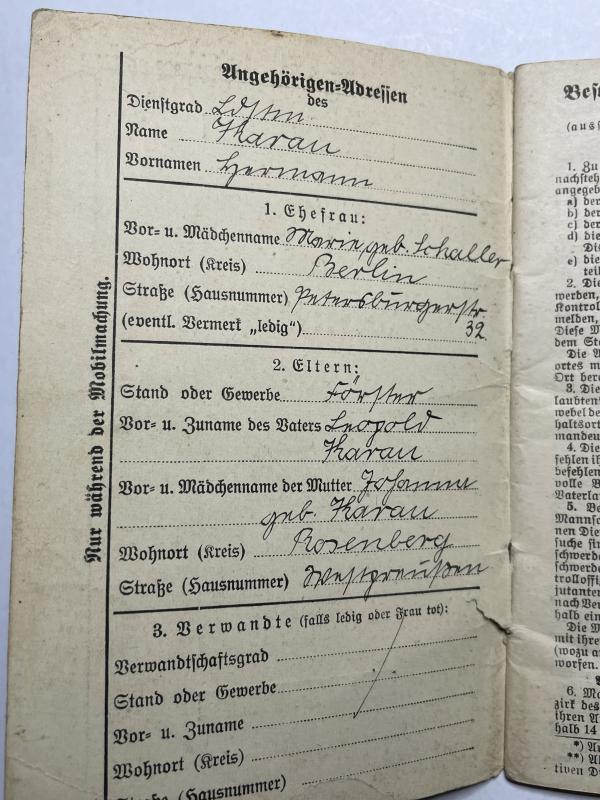 Angehörigen-Adressen
des
Dienstgrad Ldstm
Name Karau
Vornamen Hermann
1. Ehefrau:
Vor- u. Mädchenname Marie geb. Schaller
Wohnort (Kreis) Berlin
Straße (Hausnummer) Petersburgerstr.
(eventl. Vermerk „ledig“) 32
2. Eltern:
Stand oder Gewerbe Förster
Vor- u. Zuname des Vaters Leopold
Karau
Vor- u. Mädchenname der Mutter
geb. Karau
Wohnort (Kreis) Rosenberg
Straße (Hausnummer) Westpreußen
3. Verwandte (falls ledig oder Frau tot):
Verwandtschaftsgrad
Stand oder Gewerbe
Vor- u. Zuname
Wohnort (Kreis)
Straße (Hausnummer)
Nur während der Mobilmachung.
Bes
(aus
1. Zu
nachsteh
angegeb
a) der
b) der
c) der
d) die
Die
e) die
teil
2. Die
werden,
Kontrol
melden,
Diese M
dem Ste
Die A
ortes m
Ort bere
3. Die
laubten
webel de
haltsort
mandeu
4. Die
fehlen ih
befehlen
volle B
Vaterla
5. Be
Mannsc
nen Die
suche sin
schwerde
schwerde
trolloffi
jutanten
nach Ver
halb ein
Die M
mit ihre
(wozu a
worfen.
6. Ma
zirk des
ihren A
halb 14
*) Au
**) Al
tiven D